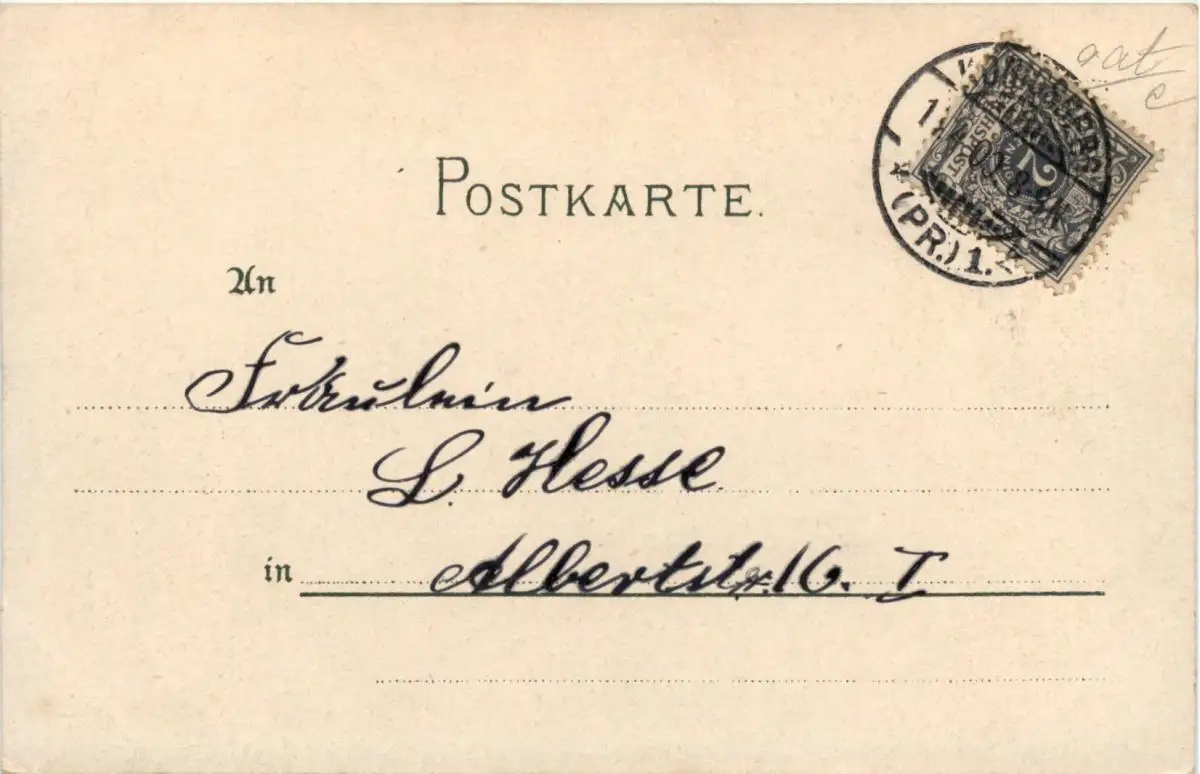 POSTKARTE.
KÖNIGSBERG
(PR.) 1.
2
An
Fräulein
L. Hesse
in Albertstr. 16. I